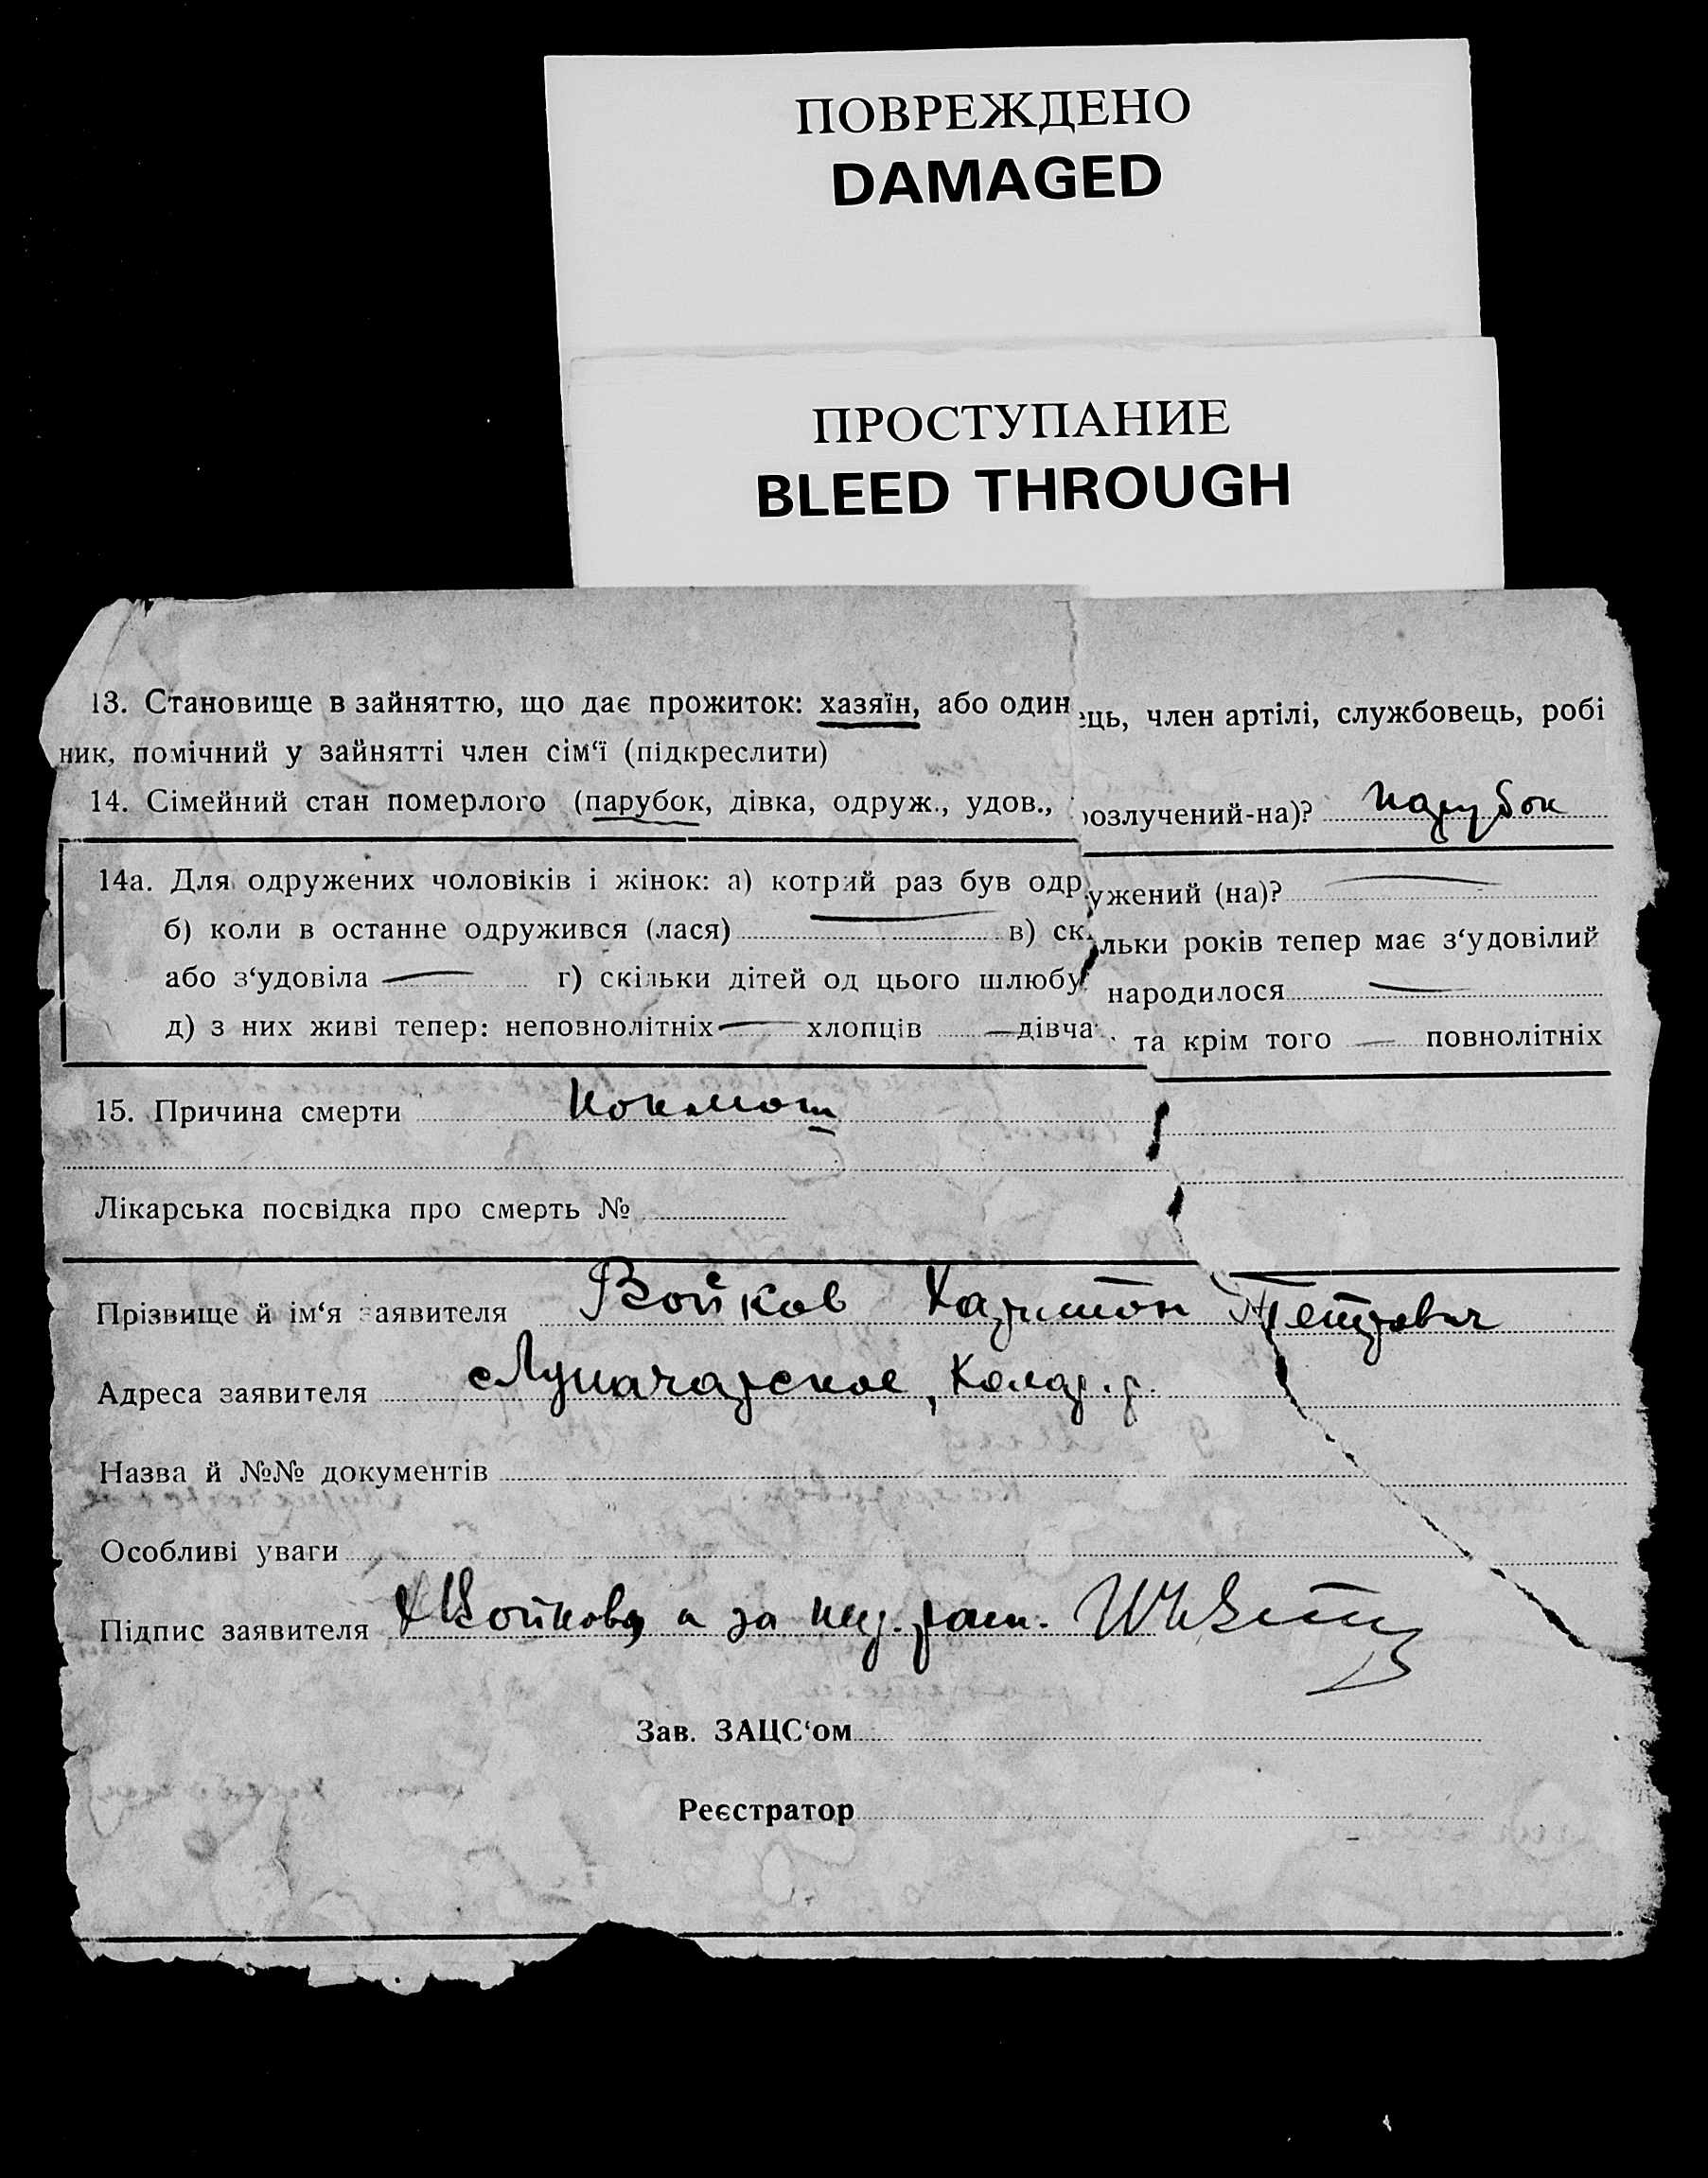 ПОВРЕЖДЕНО
DAMAGED
ПРОСТУПАНИЕ
BLEED THROUGH
13. Становище в зайняттю, що дає прожиток: хазяїн, або один ець, член артілі, службовець, робі
ник, помічний у зайнятті член сім‘ї (підкреслити)
14. Сімейний стан померлого (парубок, дівка, одруж., удов., розлучений-на)? парубок
14а. Для одружених чоловіків і жінок: а) котрий раз був одружений (на)?
б) коли в останне одружився (лася) в) скільки років тепер має з‘удовілий
або з‘удовіла г) скільки дітей од цього шлюбу народилося
д) з них живі тепер: неповнолітніх хлопців дівча та крім того повнолітніх
15. Причина смерти
Лікарська посвідка про смерть №
Прізвище й ім‘я заявителя Войков Харитон Петрович
Адреса заявителя Луначарское, Колар. р.
Назва й №№ документів
Особливі уваги
Підпис заявителя Х Войков, а за
Зав. ЗАЦС‘ом
Реєстратор